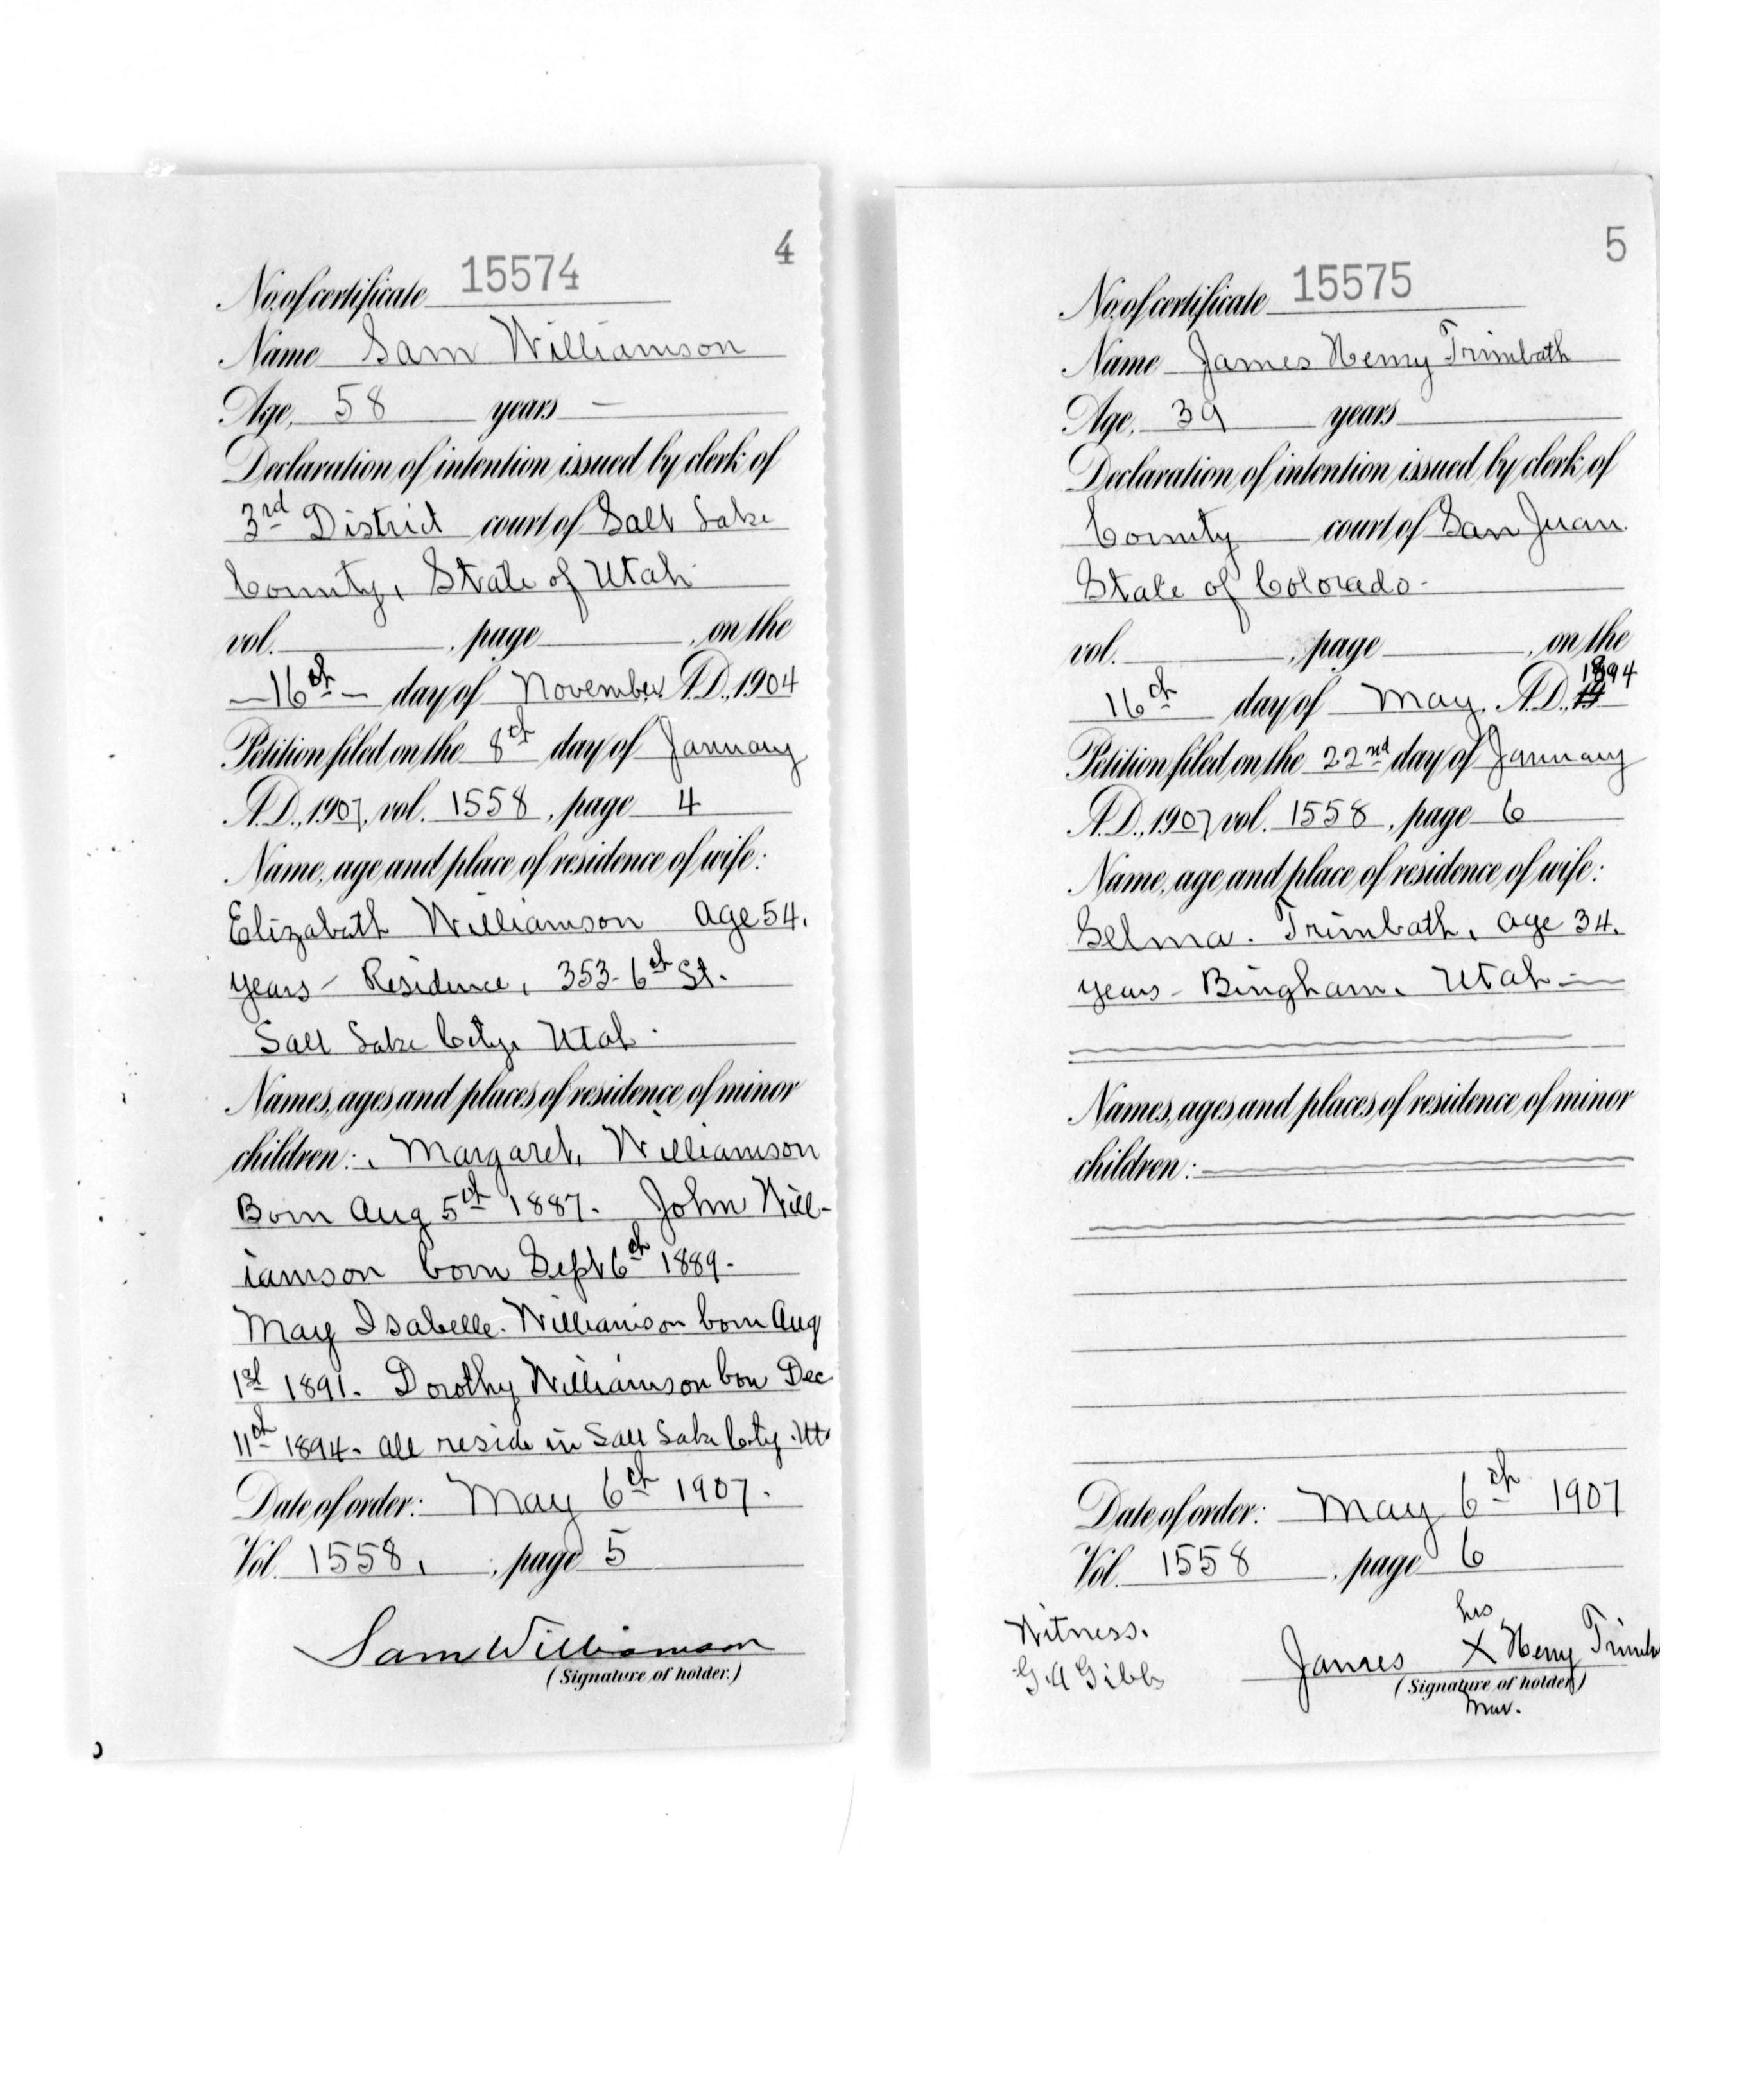 4
No. of certificate 15574
Name Sam Williamson
Age, 58 years —
Declaration of intention issued by clerk of
3rd District court of Salt Lake
County, State of Utah
vol. , page , on the
—16th— day of November A.D., 1904
Petition filed on the 8th day of January
A.D., 1907, vol. 1558, page 4
Name, age and place of residence of wife:
Elizabath Williamson Age 54.
years - Residence, 353-6th St.
Salt Lake City, Utah.
Names, ages and places of residence of minor
children: Margaret, Williamson
Born Aug 5th 1887. John Will-
iamson born Sept 6th 1889.
May Isabelle. Williamson born Aug
1st 1891. Dorothy Williamson bon Dec
11th 1894. all reside in Salt Lake City. Ut
Date of order: May 6th 1907.
Vol. 1558, , page 5
Sam Williamson
(Signature of holder.)
5
No. of certificate 15575
Name James Henry Trimbath
Age, 39 years
Declaration of intention issued by clerk of
County court of San Juan.
State of Colorado.
vol. , page , on the
16th day of May. A.D., 1894
Petition filed on the 22nd day of January
A.D., 1907 vol. 1558, page 6
Name, age and place of residence of wife:
Selma. Trimbath, age 34.
years - Bingham. Utah —
Names, ages and places of residence of minor
children:
Date of order: May 6th 1907
Vol. 1558, page 6
his
Witness.
G.A Gibbs
James X Henry Trimb
(Signature of holder)